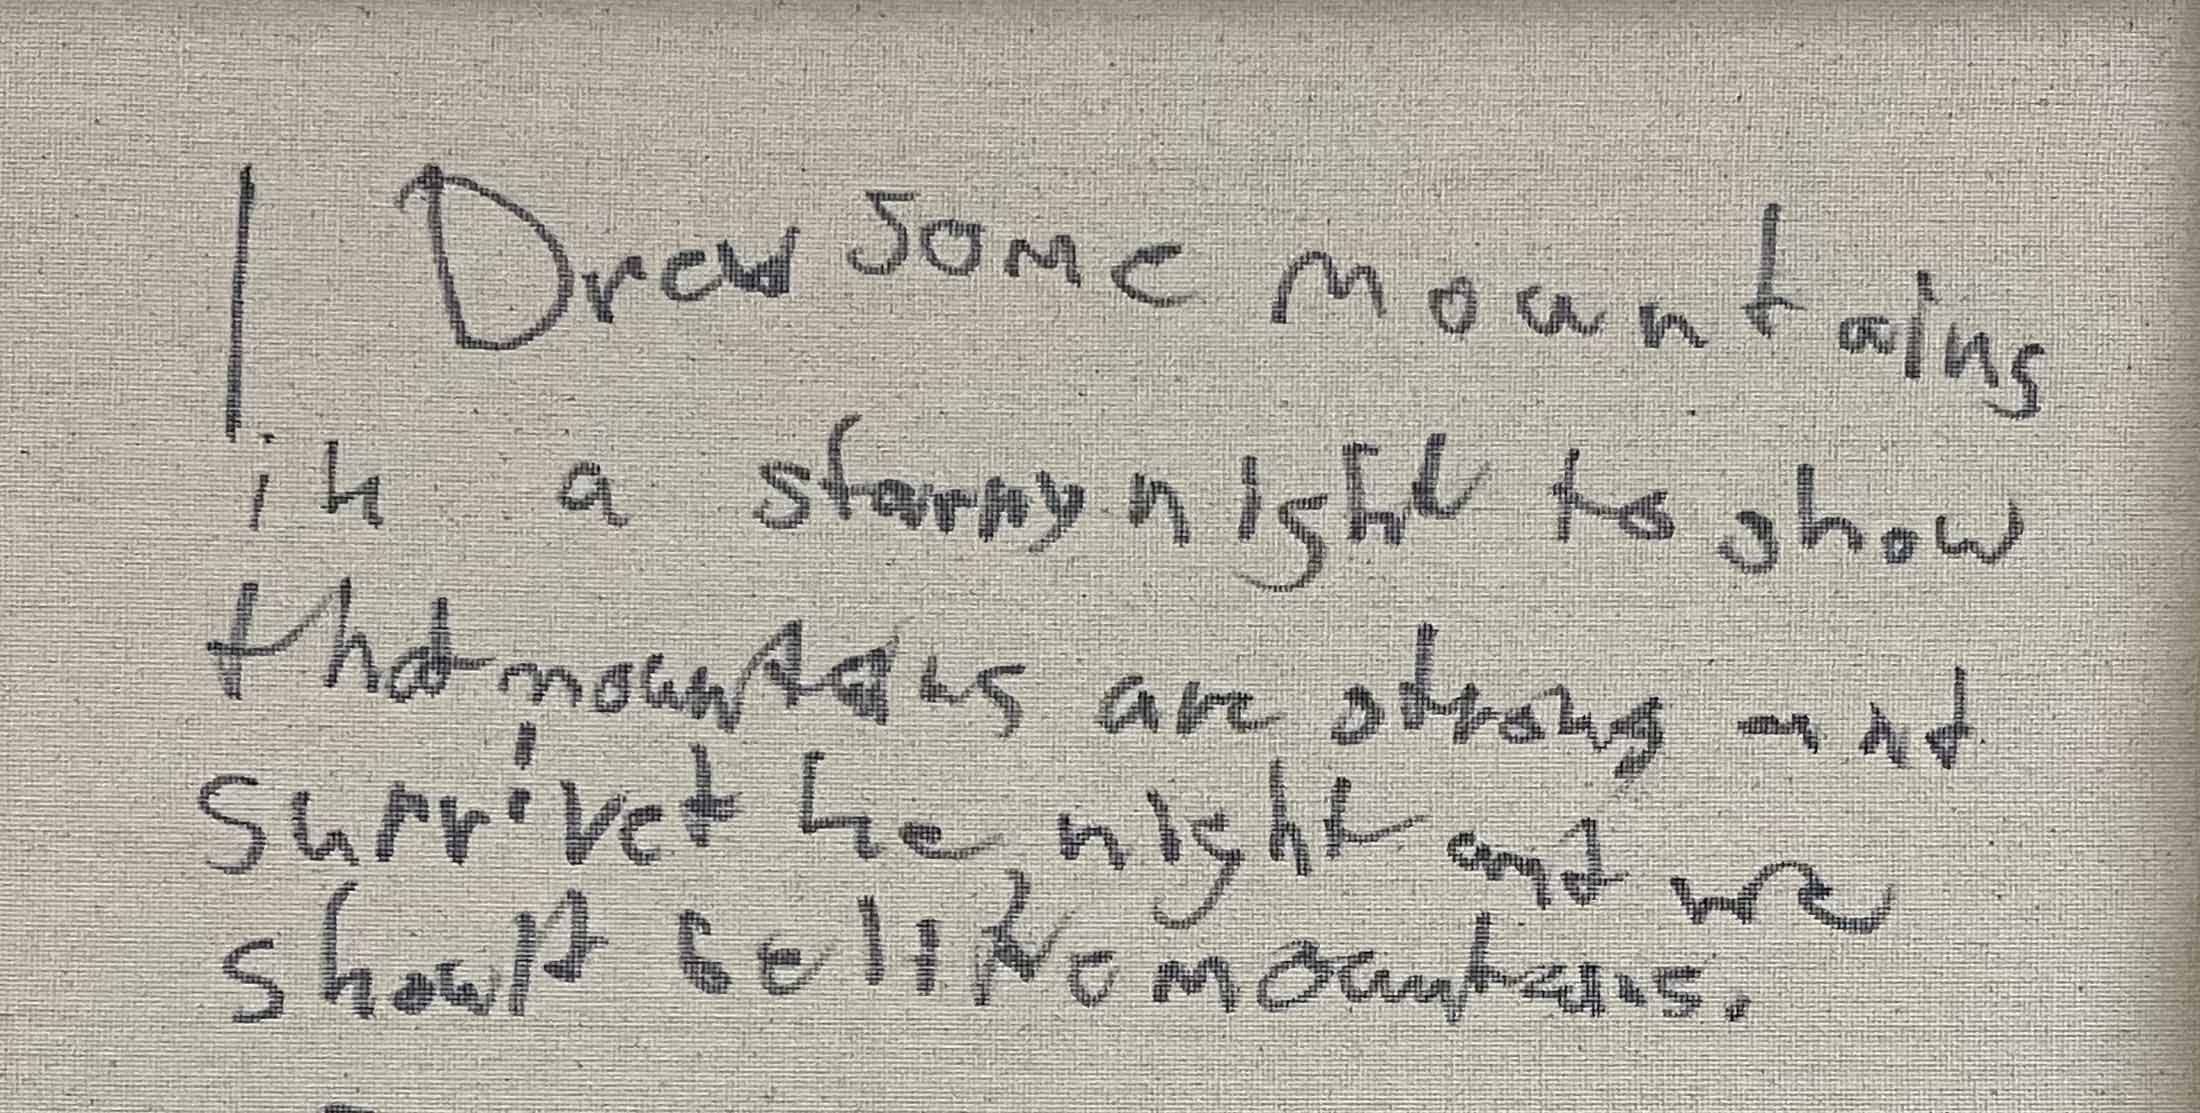 I Drew some mountains
in a starry night to show
that mountains are strong and
survive the night and we
should be like mountains.